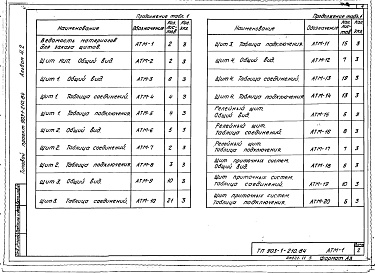 Продолжение табл. 1
Наименование Обозначение Кол. листов Кол. экз.
Ведомость материалов для заказа щитов. АТМ-1 2 3
Щит КИП. Общий вид АТМ-2 2 3
Щит 1. Общий вид АТМ-3 8 3
Щит 1. Таблица соединений АТМ-4 4 3
Щит 1. Таблица подключения АТМ-5 4 3
Щит 2. Общий вид АТМ-6 5 3
Щит 2. Таблица соединений АТМ-7 2 3
Щит 2. Таблица подключения АТМ-8 3 3
Щит 3. Общий вид АТМ-9 10 3
Щит 3. Таблица соединений АТМ-10 21 3
Продолжение табл. 1
Наименование Обозначение Кол. листов Кол. экз.
Щит 3. Таблица подключения АТМ-11 15 3
Щит 4. Общий вид АТМ-12 7 3
Щит 4. Таблица соединений АТМ-13 18 3
Щит 4. Таблица подключения АТМ-14 13 3
Релейный щит.
Общий вид АТМ-15 5 3
Релейный щит.
Таблица соединений АТМ-16 8 3
Релейный щит
Таблица подключения АТМ-17 7 3
Щит приточных систем.
Общий вид АТМ-18 5 3
Щит приточных систем,
таблица соединений АТМ-19 10 3
Щит приточных систем.
Таблица подключения АТМ-20 5 3
Типовой проект 903-1-210.84 Альбом 11.2
ТП 903-1-210.84 АТМ-1
2
Формат А3